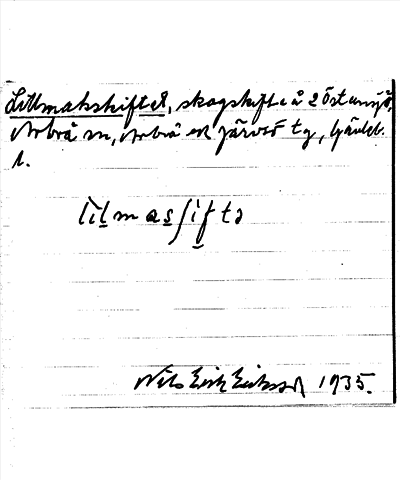 Lillmaskskiftet, skogskifte å 2 Östansjö,
Arbrå sn, Arbrå och Järvsö tg, Gävleb.
l.
lilmasʃifta
Nils Erik Eriksson 1935.